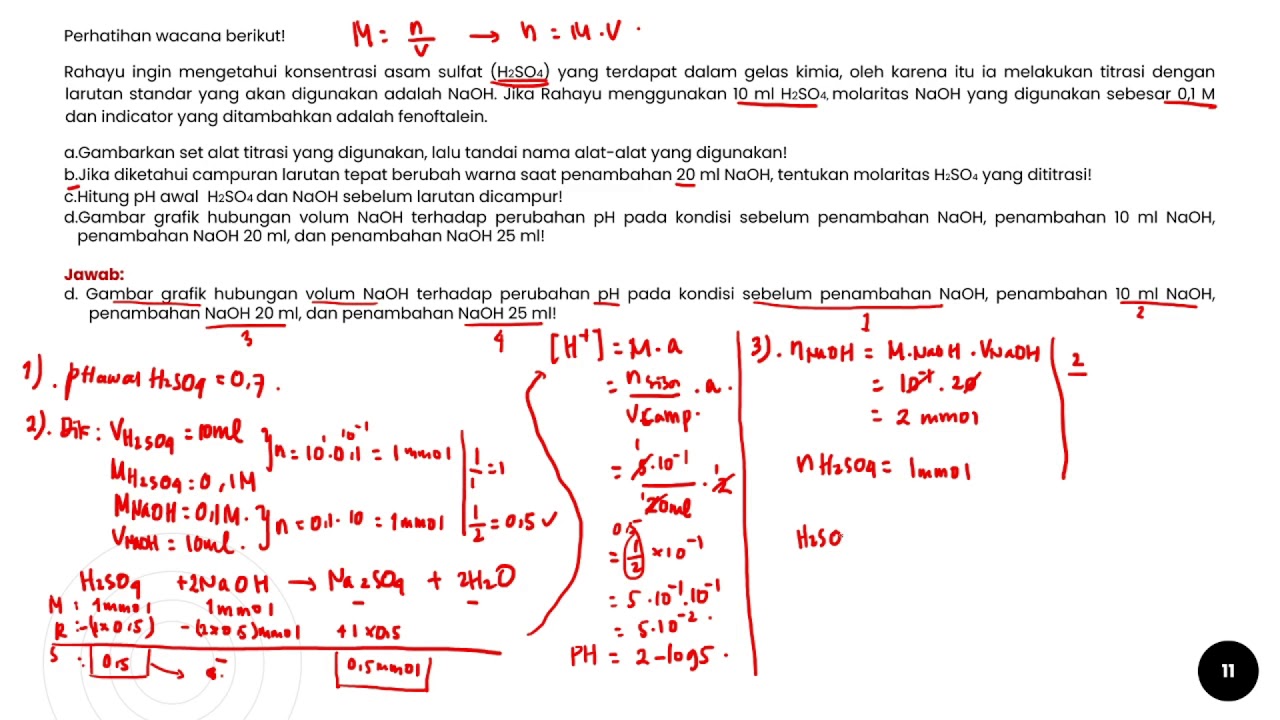 Perhatihan wacana berikut!
M = n/V → n = M.V.
Rahayu ingin mengetahui konsentrasi asam sulfat (H2SO4) yang terdapat dalam gelas kimia, oleh karena itu ia melakukan titrasi dengan
larutan standar yang akan digunakan adalah NaOH. Jika Rahayu menggunakan 10 ml H2SO4, molaritas NaOH yang digunakan sebesar 0,1 M
dan indicator yang ditambahkan adalah fenoftalein.
a.Gambarkan set alat titrasi yang digunakan, lalu tandai nama alat-alat yang digunakan!
b.Jika diketahui campuran larutan tepat berubah warna saat penambahan 20 ml NaOH, tentukan molaritas H2SO4 yang dititrasi!
c.Hitung pH awal H2SO4 dan NaOH sebelum larutan dicampur!
d.Gambar grafik hubungan volum NaOH terhadap perubahan pH pada kondisi sebelum penambahan NaOH, penambahan 10 ml NaOH,
penambahan NaOH 20 ml, dan penambahan NaOH 25 ml!
Jawab:
d. Gambar grafik hubungan volum NaOH terhadap perubahan pH pada kondisi sebelum penambahan NaOH, penambahan 10 ml NaOH,
penambahan NaOH 20 ml, dan penambahan NaOH 25 ml!
1 2
3 4
1). pHawal H2SO4 = 0,7.
2). Dik: VH2SO4 = 10ml
MH2SO4 = 0,1M
n = 10.0,1 = 1 mmol
10^-1
1/1 = 1
MNaOH = 0,1M.
VNaOH = 10ml.
n = 0,1.10 = 1mmol
1/2 = 0,5 ✓
H2SO4 + 2NaOH → Na2SO4 + 2H2O
M : 1mmol 1mmol - -
R : -(1x0,5) -(2x0,5)mmol +1x0,5
S : 0,5 → - 0,5mmol
[H+] = M.a
= n sisa / V camp. . a.
= 5.10^-1 / 20ml . 2
1 1 1
0,5
= 1/2 x 10^-1
= 5.10^-1.10^-1
= 5.10^-2.
PH = 2-log5.
3). nNaOH = M.NaOH.VNaOH
= 10^-1.20
= 2 mmol
nH2SO4 = 1mmol
H2SO
2
11